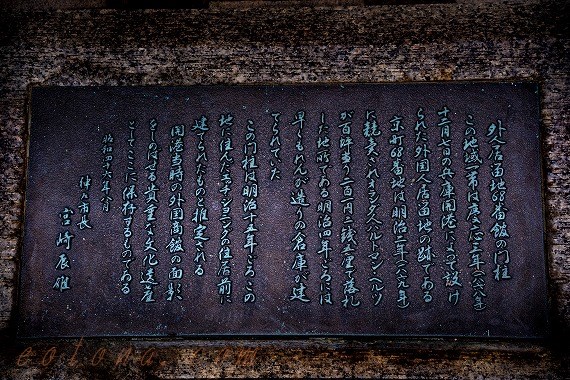 外人居留地68番館の門柱
この地域一帯は慶応三年(一八六八年)
十二月七日の兵庫開港によって設け
られた外国人居留地の跡である
京町68番地は明治二年(一八六九年)
に競売されオランダ人ハルトマンヘルツ
が百坪当り
した地所である明治四年ごろには
早くもれんが造りの倉庫が建
てられていた
この門柱は明治十五年ごろこの
地に住んだE・Hの住居前に
建てられたものと推定される
開港当時の外国商館の面影
をしのばせる貴重な文化遺産
としてここに保存するものである
昭和四十六年八月
神戸市長
宮崎辰雄
eolona.com